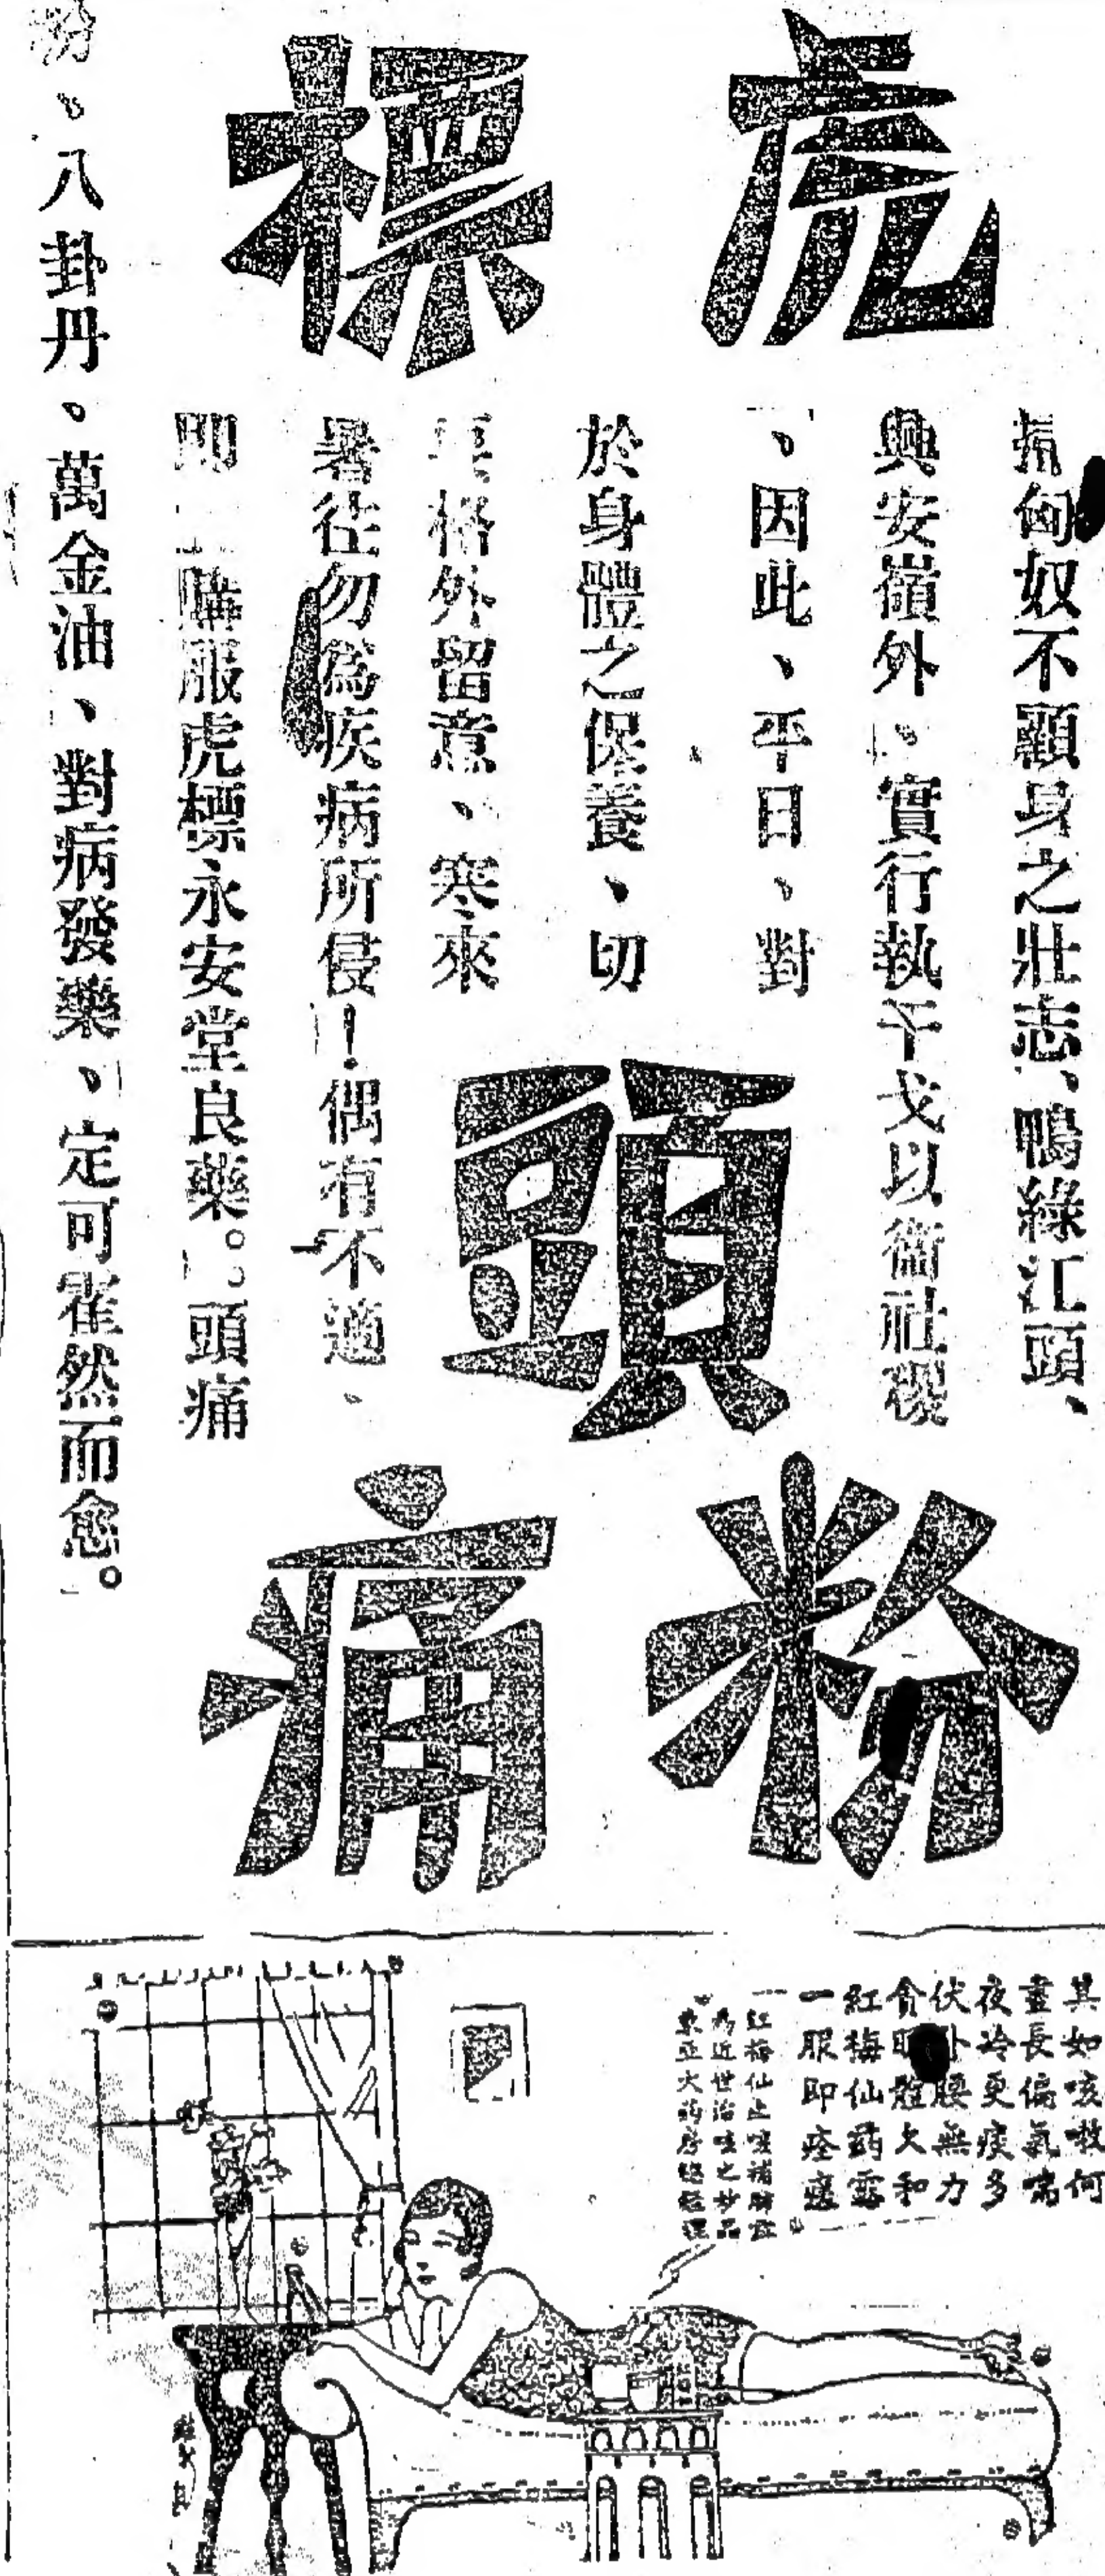 虎標
頭痛粉
匈奴不顧身之壯志、鴨綠江頭、
興安嶺外、實行執干戈以衞社稷
、因此、平日、對
於身體之保養、切
要格外留意、寒來
暑往勿爲疾病所侵!偶有不適、
即購服虎標永安堂良藥。頭痛
粉、八卦丹。萬金油、對病發藥、定可霍然而愈。
其如咳嗽何
晝長偏氣喘
夜冷更痰多
伏卧腰無力
貪眠體欠和
紅梅仙藥露
一服即痊瘥
紅梅仙止咳補肺露
為近世治咳之妙品
東亞大藥房總經理